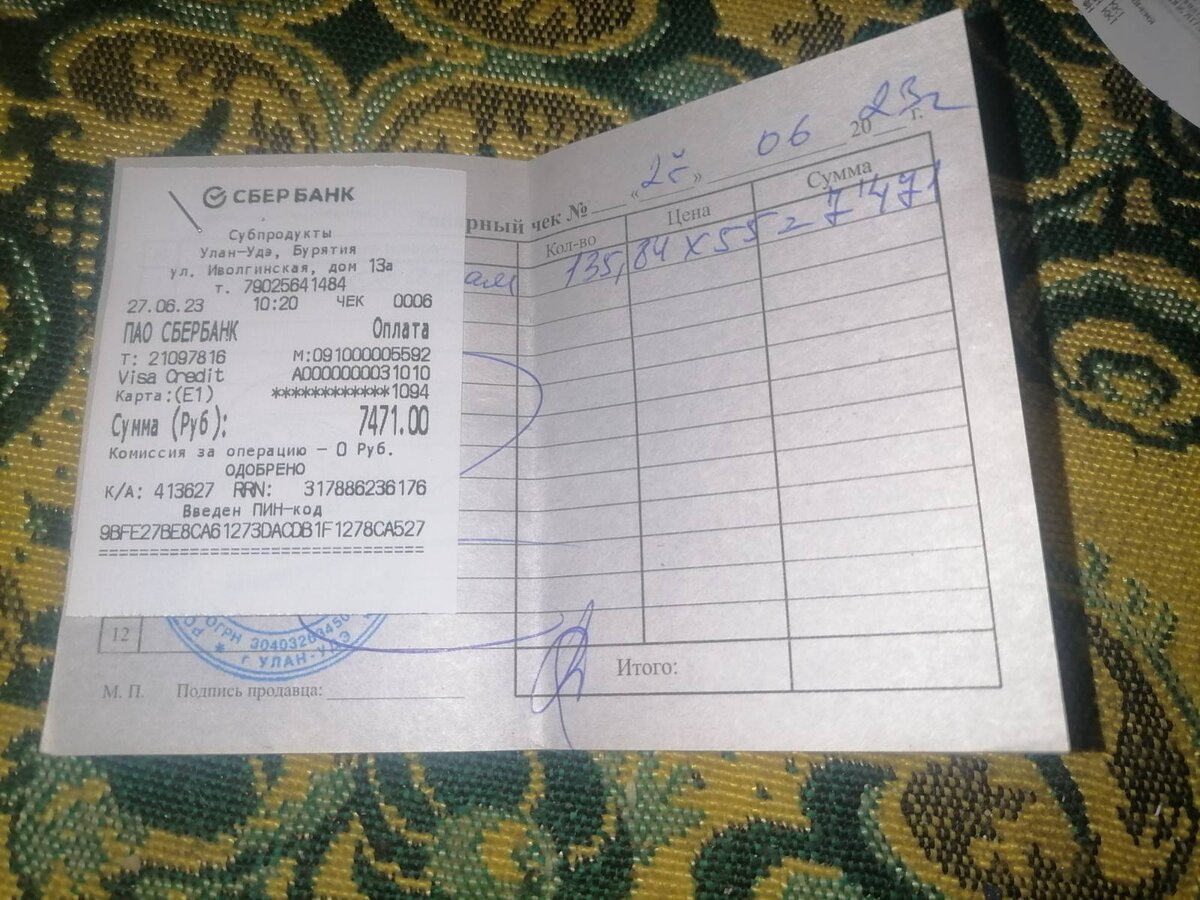 СБЕР БАНК
Субпродукты
Улан-Удэ, Бурятия
ул. Иволгинская, дом 13а
т. 79025641484
27.06.23 10:20 ЧЕК 0006
ПАО СБЕРБАНК Оплата
Т: 21097816 М:091000005592
Visa Credit A0000000031010
Карта:(E1) ************1094
Сумма (Руб): 7471.00
Комиссия за операцию – 0 Руб.
ОДОБРЕНО
К/А: 413627 RRN: 317886236176
Введен ПИН-код
9BFE27BE8CA61273DACDB1F1278CA527
================================
рный чек № « » 06 2023 г.
Кол-во Цена Сумма
135,84 x 55 = 7'471
12
ОГРН
г УЛАН-УДЭ
Итого:
М. П. Подпись продавца: